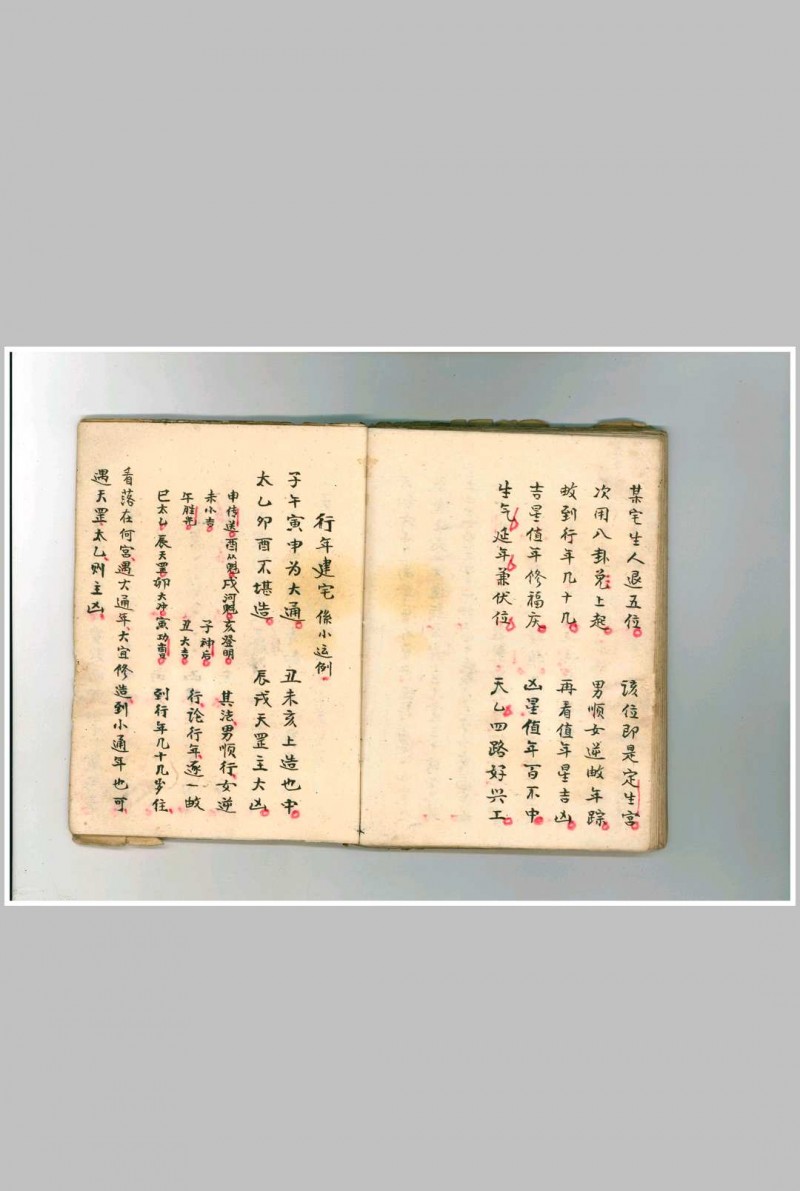 某宅生人退五位 该位即是定生宫
次用八卦兑上起 男顺女逆畋年踪
畋到行年几十几 再看值年星吉凶
吉星值年修福庆 凶星值年百不中
生气延年兼伏位 天乙四路好兴工
行年建宅 係小运例
子午寅申为大通 丑未亥上造也中
太乙卯酉不堪造 辰戌天罡主大凶
申传送 酉从魁 戌河魁 亥登明 其法男顺行女逆
未小吉 子神后
午胜光 丑大吉 行论行年逐一畋
巳太乙 辰天罡 卯大冲 寅功曹 到行年几十几岁住
看落在何宫遇大通年大宜修造到小通年也可
遇天罡太乙则主凶